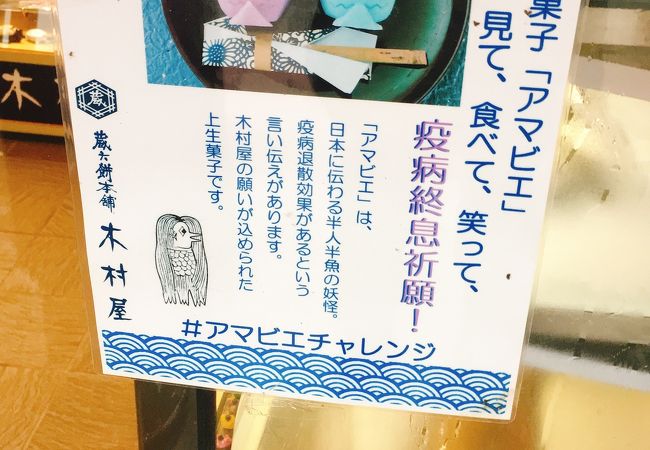 菓子「アマビエ」
見て、食べて、笑って、
疫病終息祈願！
「アマビエ」は、
日本に伝わる半人半魚の妖怪。
疫病退散効果があるという
言い伝えがあります。
木村屋の願いが込められた
上生菓子です。
蔵
蔵六餅本舗 木村屋
#アマビエチャレンジ
木村